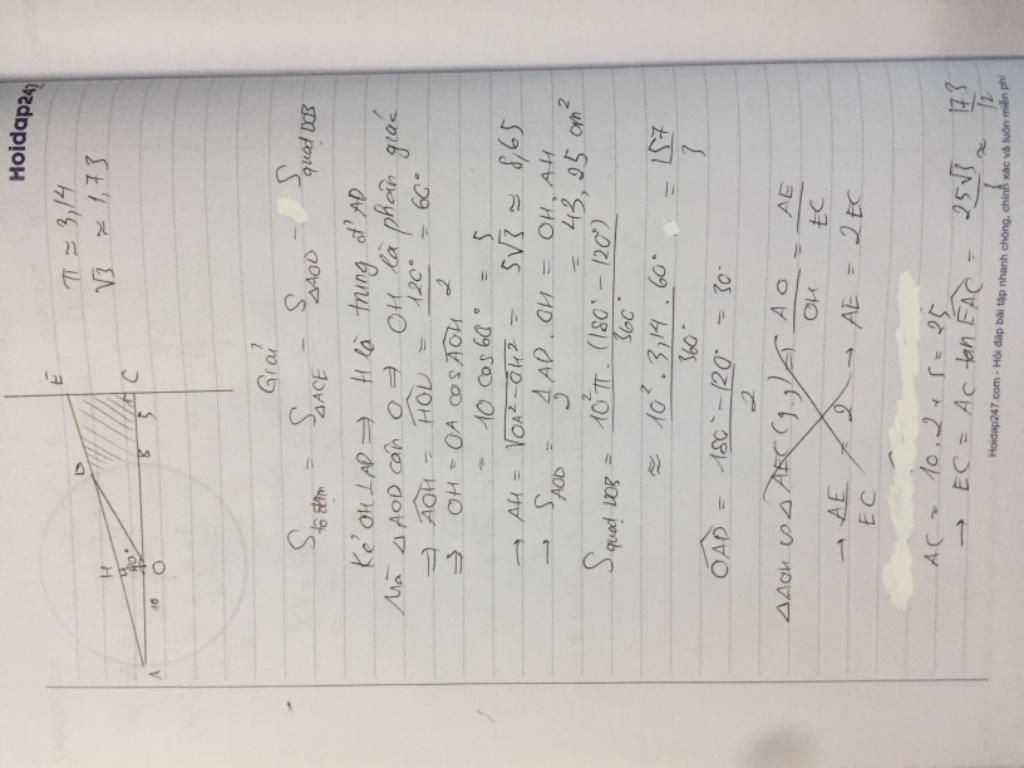 Hoidap247
π ≈ 3,14
√3 ≈ 1,73
E
D
C
H
120°
5
B
O
10
A
Giải
S tô đậm = S ΔACE − S ΔAOD − S quạt DOB
Kẻ OH ⊥ AD ⇒ H là trung đ' AD
Mà ΔAOD cân O ⇒ OH là phân giác
⇒ AOH = HOD = 120°/2 = 60°
⇒ OH = OA cos AOH
= 10 cos60° = 5
→ AH = √OA² − OH² = 5√3 ≈ 8,65
→ S AOD = 1/2 AD . OH = OH . AH
= 43,25 cm²
S quạt DOB = 10²π . (180° − 120°) / 360°
≈ 10² . 3,14 . 60° / 360° = 157/3
OAD = 180° − 120° / 2 = 30°
ΔAOH ∽ ΔAEC (g.g) ⇒ AO/OH = AE/EC
→ AE/EC = 2 → AE = 2EC
AC = 10.2 + 5 = 25
→ EC = AC tan EAC = 25√3/3 ≈ 173/12
Hoidap247.com - Hỏi đáp bài tập nhanh chóng, chính xác và luôn miễn phí